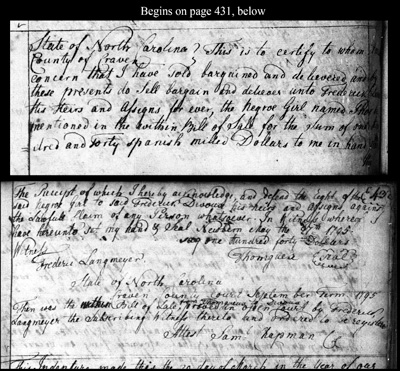 Begins on page 431, below
State of North Carolina } This is to certify to whom
County of Craven
concern that I have sold bargained and delivered and by
these presents do sell bargain and deliver unto Frederick
his Heirs and Assigns for ever, the negroe Girl named
mentioned in the within Bill of Sale for the sum of one
dred and forty Spanish milled Dollars to me in hand
The Receipt of which I hereby acknowledge, and defend the right of the
said negroe gal to said Frederick Divoux his heirs and assigns against
the lawfull Claim of any Person whatsoever. In Witness whereof
have hereunto set my hand & Seal Newbern may the 1795
one hundred forty Dollars
Witness
Frederic Langmeyer
State of North Carolina
Craven County Court September Term 1795
Then was the within Bill of Sale proved in open Court by Frederick
Langmeyer the Subscribing Witness thereto and ordered to be registered
Attest Sam Chapman
This Indenture made this the 20 day of March in the year of our